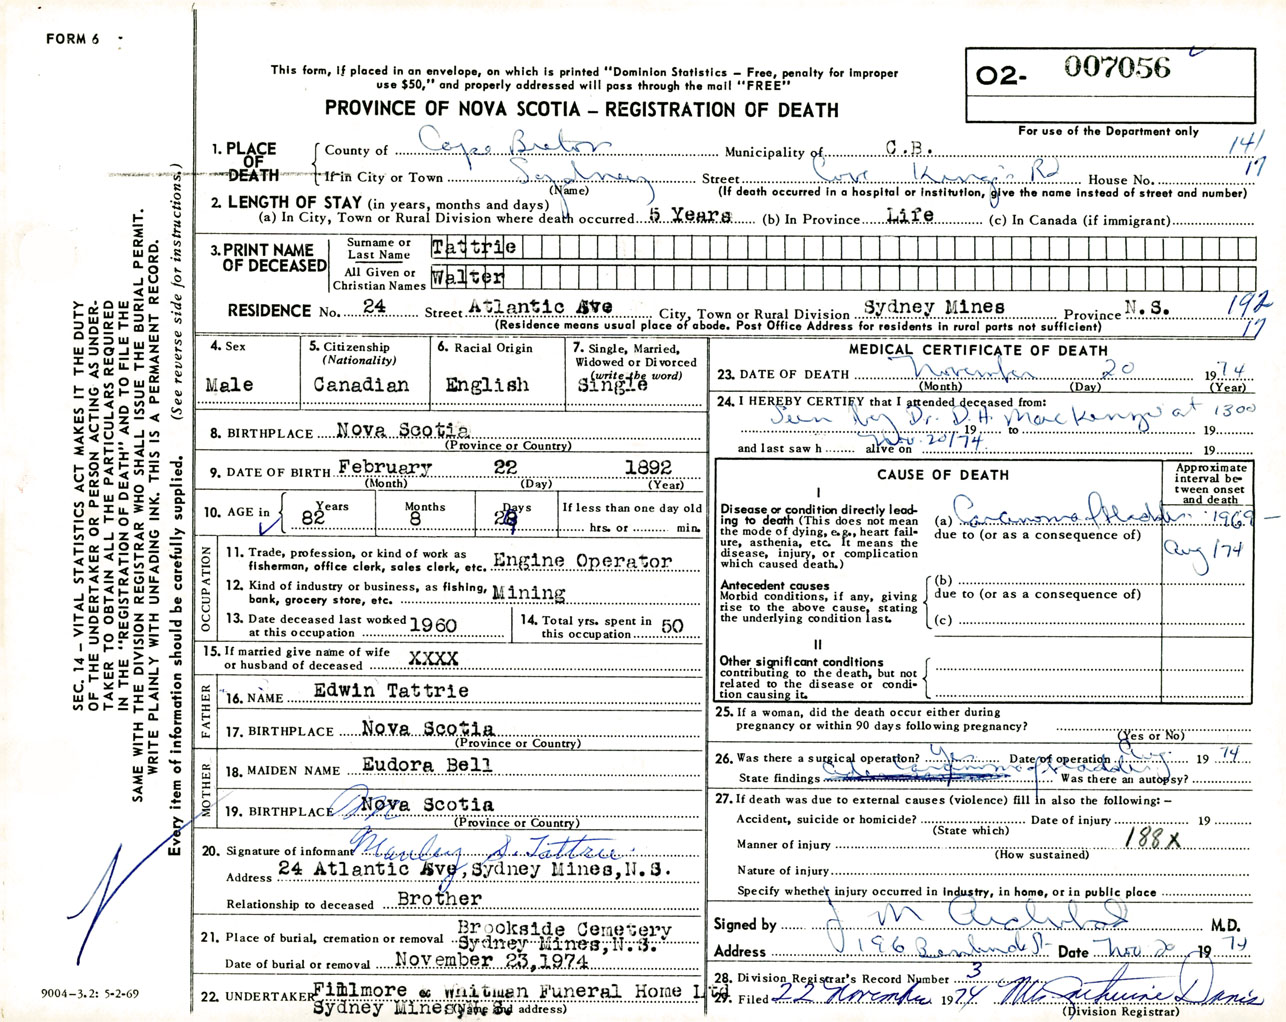 FORM 6
This form, if placed in an envelope, on which is printed "Dominion Statistics – Free, penalty for improper
use $50," and properly addressed will pass through the mail "FREE"
PROVINCE OF NOVA SCOTIA – REGISTRATION OF DEATH
02- 007056
For use of the Department only
SEC. 14 – VITAL STATISTICS ACT MAKES IT THE DUTY
OF THE UNDERTAKER OR PERSON ACTING AS UNDER-
TAKER TO OBTAIN ALL THE PARTICULARS REQUIRED
IN THE "REGISTRATION OF DEATH" AND TO FILE THE
SAME WITH THE DIVISION REGISTRAR WHO SHALL ISSUE THE BURIAL PERMIT.
WRITE PLAINLY WITH UNFADING INK. THIS IS A PERMANENT RECORD.
Every item of information should be carefully supplied. (See reverse side for instructions.)
1. PLACE OF DEATH
County of Cape Breton Municipality of C.B. 141
If in City or Town Sydney Street Cove King's Rd House No. 17
(Name) (If death occurred in a hospital or institution, give the name instead of street and number)
2. LENGTH OF STAY (in years, months and days)
(a) In City, Town or Rural Division where death occurred 5 Years (b) In Province Life (c) In Canada (if immigrant)
3. PRINT NAME OF DECEASED
Surname or Last Name Tattrie
All Given or Christian Names Walter
RESIDENCE No. 24 Street Atlantic Ave City, Town or Rural Division Sydney Mines Province N.S. 192
(Residence means usual place of abode. Post Office Address for residents in rural parts not sufficient) 17
4. Sex Male
5. Citizenship (Nationality) Canadian
6. Racial Origin English
7. Single, Married, Widowed or Divorced (write the word) Single
8. BIRTHPLACE Nova Scotia
(Province or Country)
9. DATE OF BIRTH February 22 1892
(Month) (Day) (Year)
10. AGE in Years 82 Months 8 Days 28 If less than one day old
hrs. or min.
OCCUPATION
11. Trade, profession, or kind of work as
fisherman, office clerk, sales clerk, etc. Engine Operator
12. Kind of industry or business, as fishing,
bank, grocery store, etc. Mining
13. Date deceased last worked
at this occupation 1960
14. Total yrs. spent in
this occupation 50
15. If married give name of wife
or husband of deceased XXXX
FATHER
16. NAME Edwin Tattrie
17. BIRTHPLACE Nova Scotia
(Province or Country)
MOTHER
18. MAIDEN NAME Eudora Bell
19. BIRTHPLACE Nova Scotia
(Province or Country)
20. Signature of informant Manley S. Tattrie
Address 24 Atlantic Ave, Sydney Mines, N.S.
Relationship to deceased Brother
21. Place of burial, cremation or removal Brookside Cemetery
Sydney Mines, N.S.
Date of burial or removal November 23, 1974
22. UNDERTAKER Fillmore & Whitman Funeral Home Ltd
Sydney Mines, N.S. (Name and address)
MEDICAL CERTIFICATE OF DEATH
23. DATE OF DEATH November 20 1974
(Month) (Day) (Year)
24. I HEREBY CERTIFY that I attended deceased from:
Seen by Dr. D.H. MacKenzie at 1300
19 to 19
Nov. 20/74
and last saw h alive on 19
CAUSE OF DEATH
Approximate interval between onset and death
I
Disease or condition directly lead-
ing to death (This does not mean
the mode of dying, e.g., heart fail-
ure, asthenia, etc. It means the
disease, injury, or complication
which caused death.)
(a) Carcinoma Bladder 1969 –
due to (or as a consequence of) Aug/74
Antecedent causes
Morbid conditions, if any, giving
rise to the above cause, stating
the underlying condition last.
(b)
due to (or as a consequence of)
(c)
II
Other significant conditions
contributing to the death, but not
related to the disease or condi-
tion causing it.
25. If a woman, did the death occur either during
pregnancy or within 90 days following pregnancy?
(Yes or No)
26. Was there a surgical operation? Yes Date of operation Aug. 1974
State findings carcinoma of bladder Was there an autopsy?
27. If death was due to external causes (violence) fill in also the following: –
Accident, suicide or homicide? Date of injury 19
(State which)
Manner of injury 188X
(How sustained)
Nature of injury
Specify whether injury occurred in industry, in home, or in public place
Signed by J M Archibald M.D.
Address 196 St. Date Nov. 20 1974
28. Division Registrar's Record Number 3
29. Filed 22 November 1974 Mrs Catherine Davis
(Division Registrar)
9004-3.2: 5-2-69